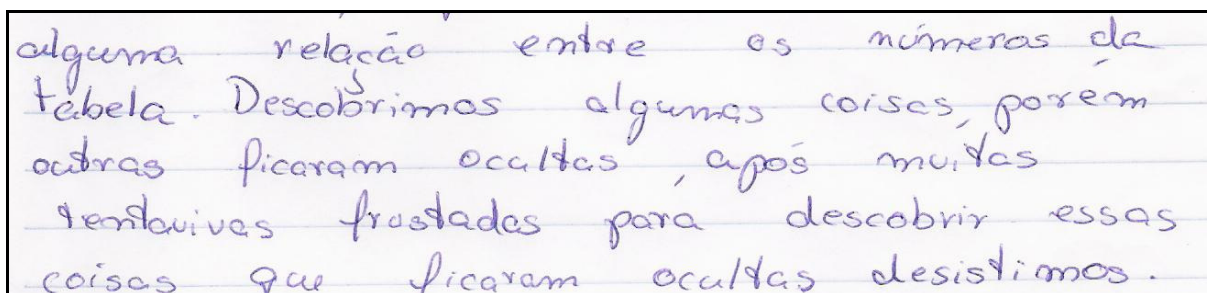 alguma relação entre os números da
tabela. Descobrimos algumas coisas, porém
outras ficaram ocultas, após muitas
tentavivas frustadas para descobrir essas
coisas que ficaram ocultas desistimos.